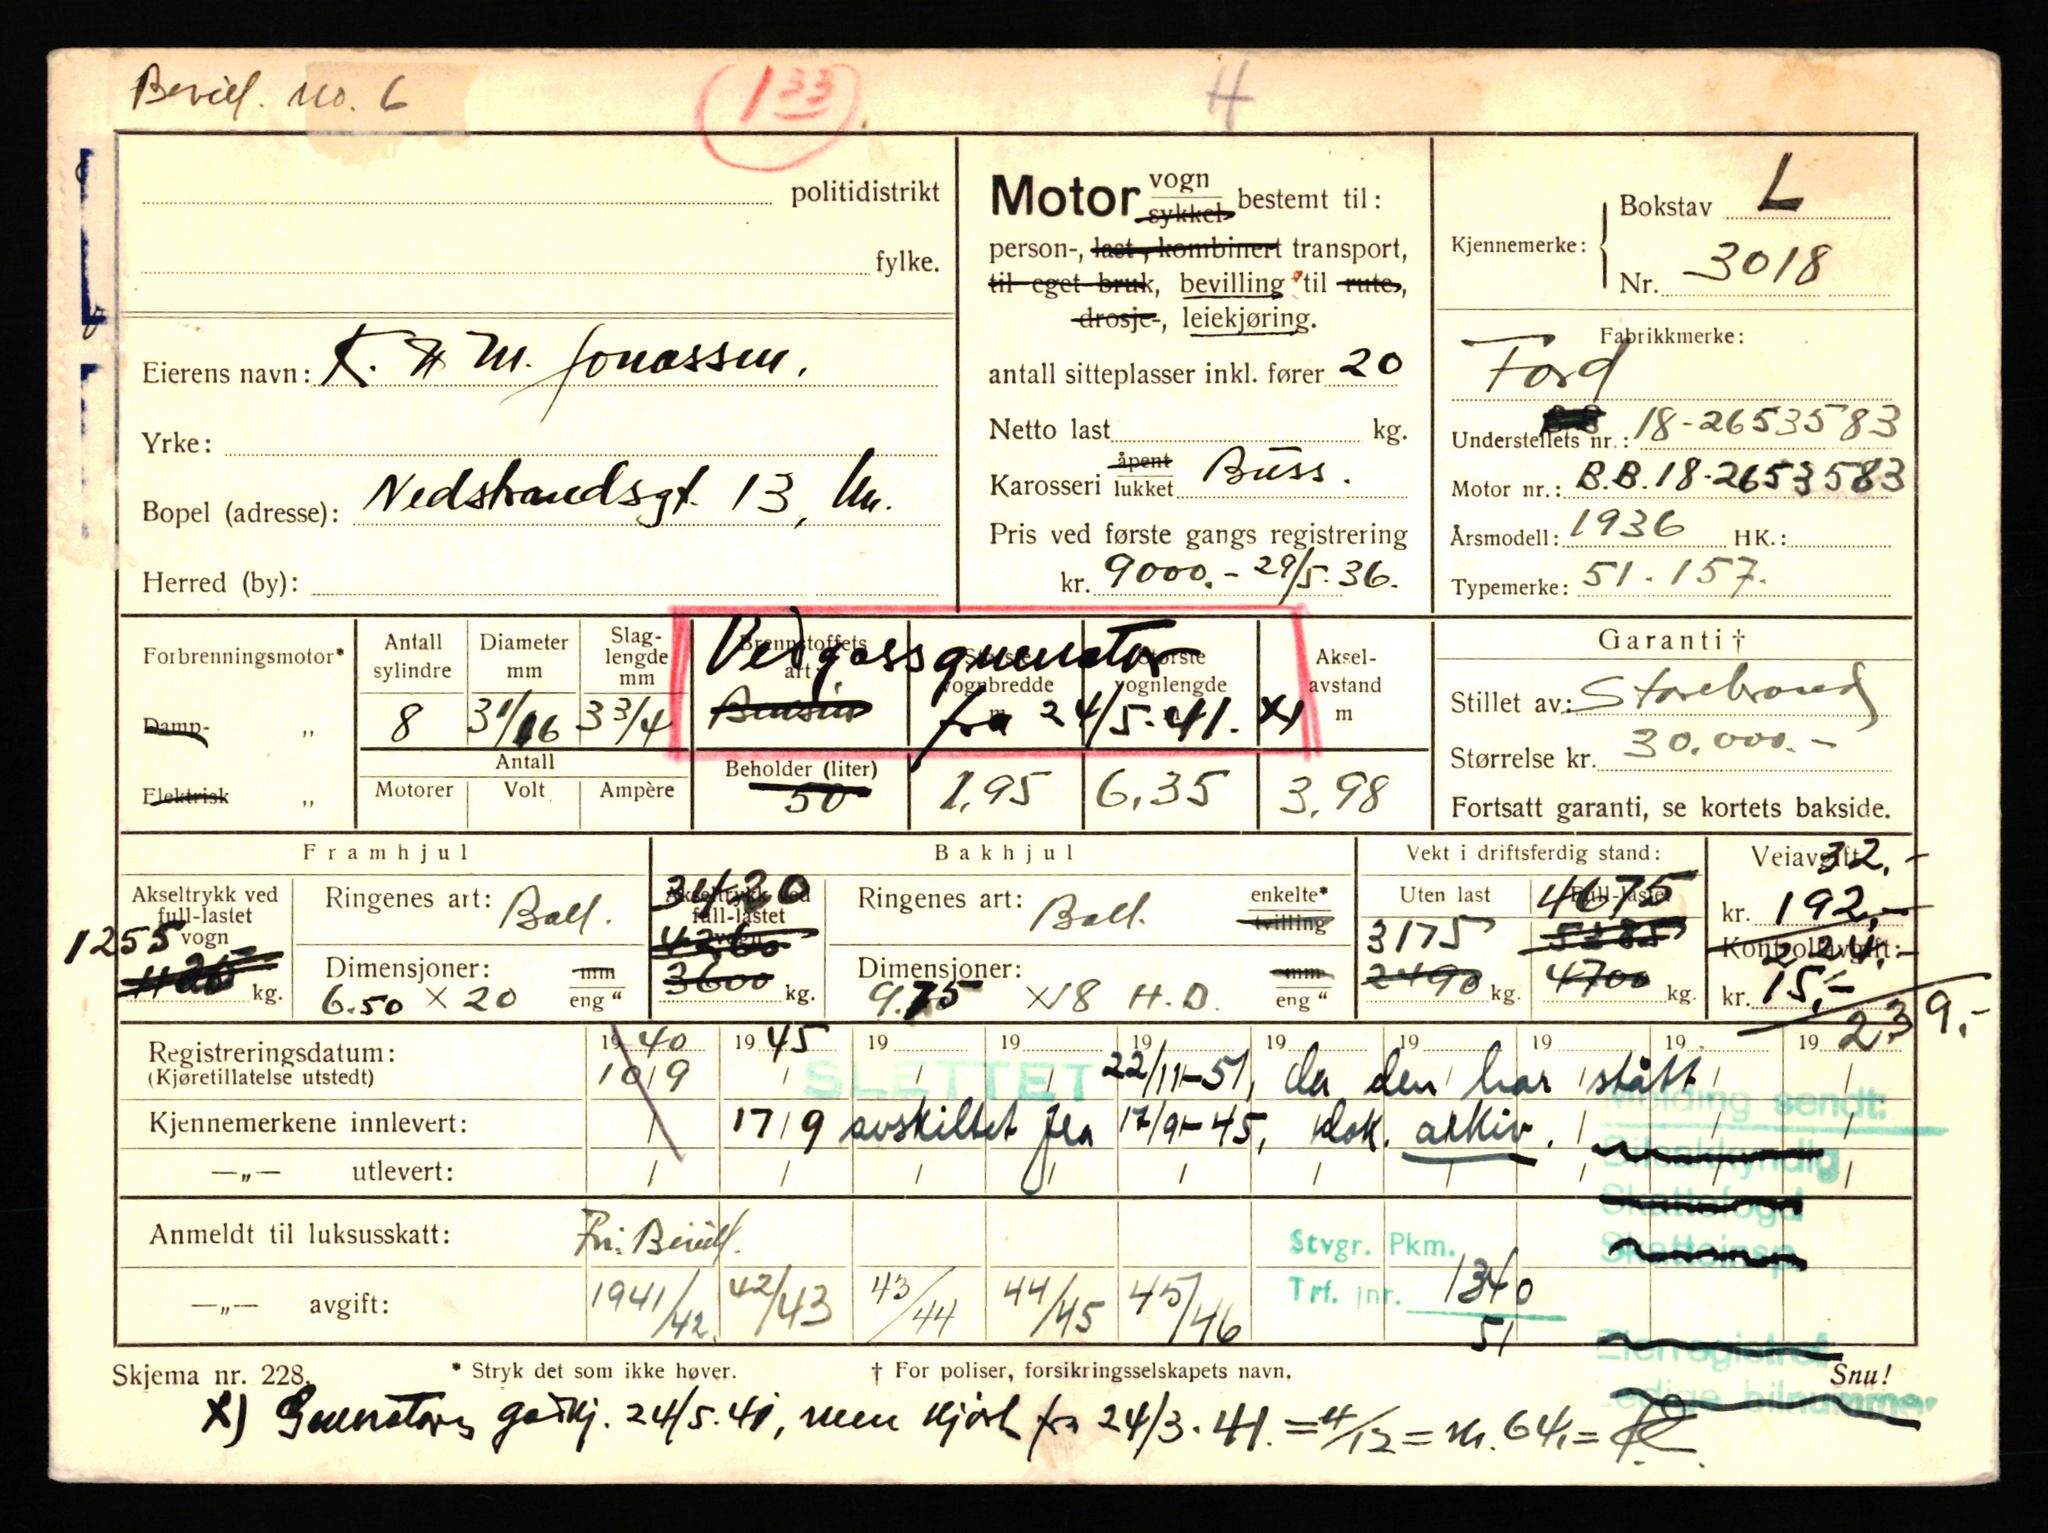 Bevill. no. 6
133
H
politidistrikt
fylke.
Eierens navn: K. H M. Jonassen.
Yrke:
Bopel (adresse): Nedstrandsgt. 13,
Herred (by):
Motor vogn
sykkel bestemt til:
person-, last-, kombinert transport,
til eget bruk, bevilling til rute-,
drosje-, leiekjøring.
antall sitteplasser inkl. fører 20
Netto last kg.
Karosseri åpent
lukket Buss.
Pris ved første gangs registrering
kr. 9000.- 29/5-36.
Kjennemerke: Bokstav L
Nr. 3018
Fabrikkmerke:
Ford
Understellets nr.: 18-2653583
Motor nr.: B.B.18-2653583
Årsmodell: 1936 HK.:
Typemerke: 51-157.
Forbrenningsmotor*
Damp- „
Elektrisk „
Antall sylindre
8
Diameter mm
3 1/16
Slag-lengde mm
3 3/4
Brennstoffets art
Vedgassgenerator
Bensin fra 24/5-41. x)
Største vognbredde m
Største vognlengde
Aksel-avstand m
Antall
Motorer Volt Ampère
Beholder (liter)
50
1,95
6,35
3,98
Garanti †
Stillet av: Storebrand
Størrelse kr. 30.000.-
Fortsatt garanti, se kortets bakside.
Framhjul
Akseltrykk ved full-lastet vogn
1255
1120 kg.
Ringenes art: Ball.
Dimensjoner: mm
6.50 x 20 eng "
Bakhjul
3420
Akseltrykk ved full-lastet vogn
4260
3600 kg.
Ringenes art: Ball. enkelte*
tvilling
Dimensjoner: mm
9.75 x 18 H.D. eng "
Vekt i driftsferdig stand:
Uten last
3175
2490 kg.
Full-lastet
4675
5385
4700 kg.
Veiavgift:
32,-
kr. 192,-
Kontrollavgift: 224.-
kr. 15,-
239,-
Registreringsdatum:
(Kjøretillatelse utstedt)
1940 1945 19 19 19 19 19 19 19 19
10/9 SLETTET 22/11-51, da den har stått
Kjennemerkene innlevert: 17/9 avskiltet fra 17/9-45, dok. arkiv.
—„— utlevert:
Melding sendt:
Bilsakkyndig
Skattefogd
Skatteinsp.
Eierregistret
Ledige bilnummer
Anmeldt til luksusskatt: Fri: Bevill.
—„— avgift: 1941/42. 42/43 43/44 44/45 45/46
Stvgr. Pkm.
Trf. jnr. 1340
51
Skjema nr. 228. * Stryk det som ikke høver. † For poliser, forsikringsselskapets navn. Snu!
x) Generatoren godkj. 24/5-41, men kjørt fra 24/3-41. = 4/12 = kr. 64,=